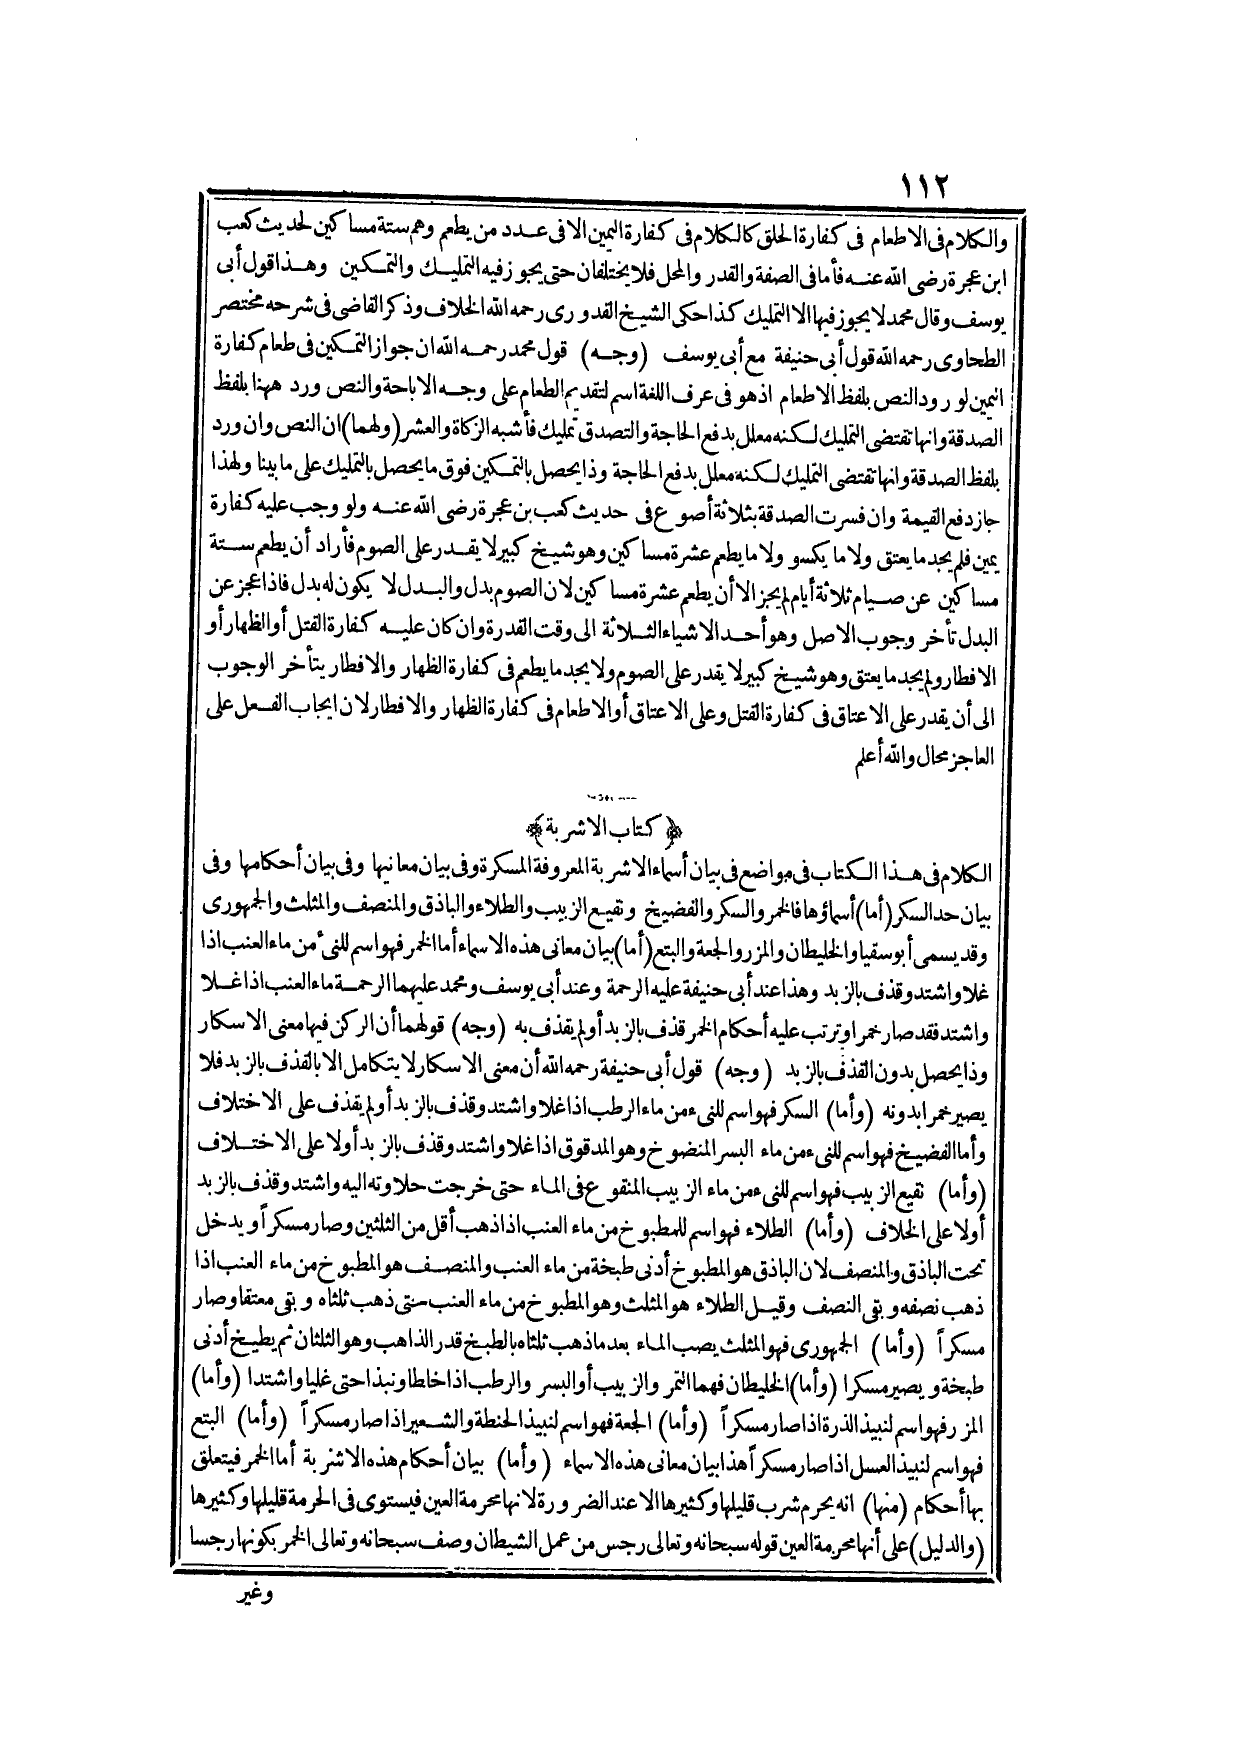 ١١٢
والكلام فى الاطعام فى كفارة الحلق كالكلام فى كفارة اليمين الا فى عدد من يطعم وهم ستة مساكين لحديث كعب
ابن عجرة رضى الله عنه فأما فى الصفة والقدر والمحل فلا يختلفان حتى يجوز فيه التمليك والتمكين وهذا قول أبى
يوسف وقال محمد لا يجوز فيها الا التمليك كذا حكى الشيخ القدورى رحمه الله الخلاف وذكر القاضى فى شرحه مختصر
الطحاوى رحمه الله قول أبى حنيفة مع أبى يوسف (وجه) قول محمد رحمه الله ان جواز التمكين فى طعام كفارة
اليمين لورود النص بلفظ الاطعام اذ هو فى عرف اللغة اسم لتقديم الطعام على وجه الاباحة والنص ورد ههنا بلفظ
الصدقة وانها تقتضى التمليك لكنه معلل بدفع الحاجة والتصدق تمليك فأشبه الزكاة والعشر (ولهما) ان النص وان ورد
بلفظ الصدقة وانها تقتضى التمليك لكنه معلل بدفع الحاجة وذا يحصل بالتمكين فوق ما يحصل بالتمليك على ما بينا ولهذا
جاز دفع القيمة وان فسرت الصدقة بثلاثة أصوع فى حديث كعب بن عجرة رضى الله عنه ولو وجب عليه كفارة
يمين فلم يجد ما يعتق ولا ما يكسو ولا ما يطعم عشرة مساكين وهو شيخ كبير لا يقدر على الصوم فأراد أن يطعم ستة
مساكين عن صيام ثلاثة أيام لم يجز الا أن يطعم عشرة مساكين لان الصوم بدل والبدل لا يكون له بدل فاذا عجز عن
البدل تأخر وجوب الاصل وهو أحد الاشياء الثلاثة الى وقت القدرة وان كان عليه كفارة القتل أو الظهار أو
الافطار ولم يجد ما يعتق وهو شيخ كبير لا يقدر على الصوم ولا يجد ما يطعم فى كفارة الظهار والافطار يتأخر الوجوب
الى أن يقدر على الاعتاق فى كفارة القتل وعلى الاعتاق أو الاطعام فى كفارة الظهار والافطار لان ايجاب الفعل على
العاجز محال والله أعلم
﴿كتاب الاشربة﴾
الكلام فى هذا الكتاب فى مواضع فى بيان أسماء الاشربة المعروفة المسكرة وفى بيان معانيها وفى بيان أحكامها وفى
بيان حد السكر (أما) أسماؤها فالخمر والسكر والفضيخ ونقيع الزبيب والطلاء والباذق والمنصف والمثلث والجمهورى
وقد يسمى أبو سقيا والخليطان والمزر والجعة والبتع (أما) بيان معانى هذه الاسماء أما الخمر فهو اسم للنىء من ماء العنب اذا
غلا واشتد وقذف بالزبد وهذا عند أبى حنيفة عليه الرحمة وعند أبى يوسف ومحمد عليهما الرحمة ماء العنب اذا غلا
واشتد فقد صار خمرا وترتب عليه أحكام الخمر قذف بالزبد أو لم يقذف به (وجه) قولهما أن الركن فيها معنى الاسكار
وذا يحصل بدون القذف بالزبد (وجه) قول أبى حنيفة رحمه الله أن معنى الاسكار لا يتكامل الا بالقذف بالزبد فلا
يصير خمرا بدونه (وأما) السكر فهو اسم للنىء من ماء الرطب اذا غلا واشتد وقذف بالزبد أو لم يقذف على الاختلاف
وأما الفضيخ فهو اسم للنىء من ماء البسر المنضوخ وهو المدقوق اذا غلا واشتد وقذف بالزبد أولا على الاختلاف
(وأما) نقيع الزبيب فهو اسم للنىء من ماء الزبيب المنقوع فى الماء حتى خرجت حلاوته اليه واشتد وقذف بالزبد
أولا على الخلاف (وأما) الطلاء فهو اسم للمطبوخ من ماء العنب اذا ذهب أقل من الثلثين وصار مسكراً ويدخل
تحت الباذق والمنصف لان الباذق هو المطبوخ أدنى طبخة من ماء العنب والمنصف هو المطبوخ من ماء العنب اذا
ذهب نصفه وبقى النصف وقيل الطلاء هو المثلث وهو المطبوخ من ماء العنب حتى ذهب ثلثاه وبقى معتقا وصار
مسكراً (وأما) الجمهورى فهو المثلث يصب الماء بعد ما ذهب ثلثاه بالطبخ قدر الذاهب وهو الثلثان ثم يطبخ أدنى
طبخة ويصير مسكرا (وأما) الخليطان فهما التمر والزبيب أو البسر والرطب اذا خلطا ونبذا حتى غليا واشتدا (وأما)
المزر فهو اسم لنبيذ الذرة اذا صار مسكراً (وأما) الجعة فهو اسم لنبيذ الحنطة والشعير اذا صار مسكراً (وأما) البتع
فهو اسم لنبيذ العسل اذا صار مسكراً هذا بيان معانى هذه الاسماء (وأما) بيان أحكام هذه الاشربة أما الخمر فيتعلق
بها أحكام (منها) انه يحرم شرب قليلها وكثيرها الا عند الضرورة لانها محرمة العين فيستوى فى الحرمة قليلها وكثيرها
(والدليل) على أنها محرمة العين قوله سبحانه وتعالى رجس من عمل الشيطان وصف سبحانه وتعالى الخمر بكونها رجسا
وغير